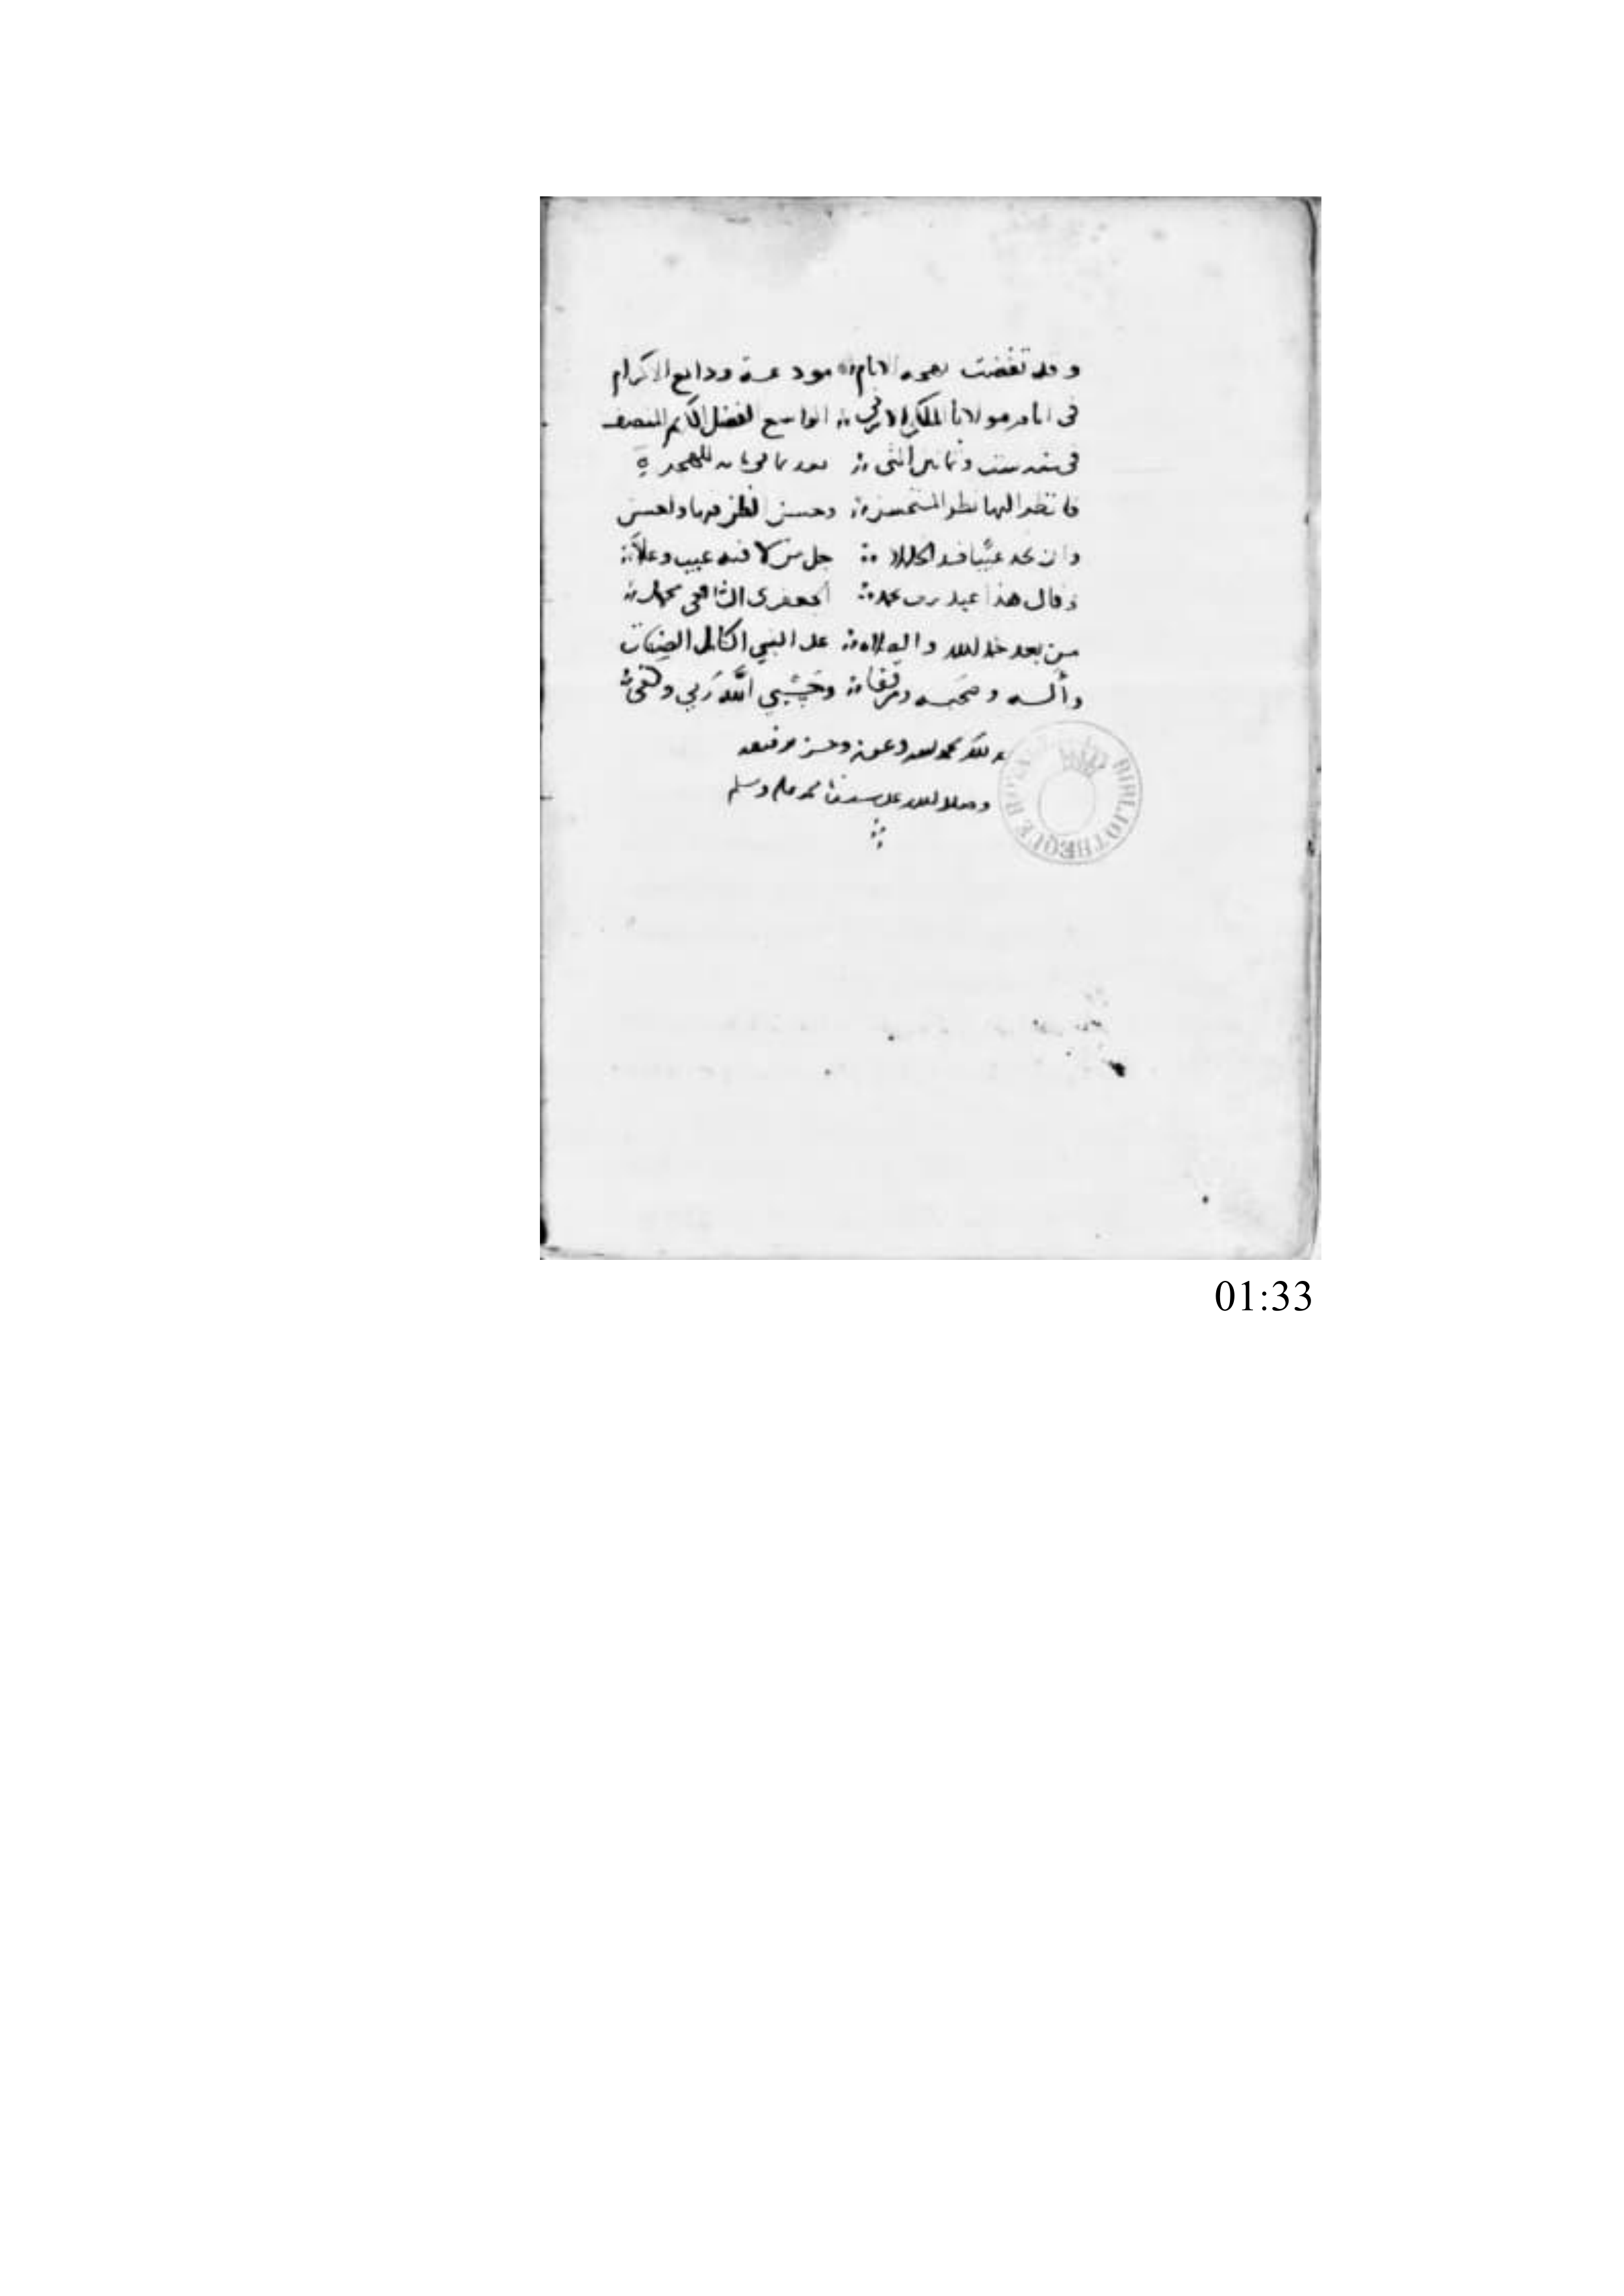 وقد تقضت بهجة الايام مودعة ودايع الاكرام
في ايام مولانا الملك الاشرفي الواسع الفضل الكريم المنصف
في سنة ست وثمانين التي بعد ثماني ماية للهجرة
فانظر اليها نظر المستحسن وحسن الظن بها واحسن
وان تجد عيبا فسد الخللا جل من لا فيه عيب وعلا
وقال هذا عبد رب محمد الجعفري الشافعي محمد
من بعد حمد الله والصلاة على النبي الكامل الصفات
وأله وصحبه ورفقا وحسبي الله ربي وكفى
بحمد الله وعونه وحسن توفيقه
وصلا الله على سيدنا محمد وسلم
BIBLIOTHEQUE ROYALE
01:33